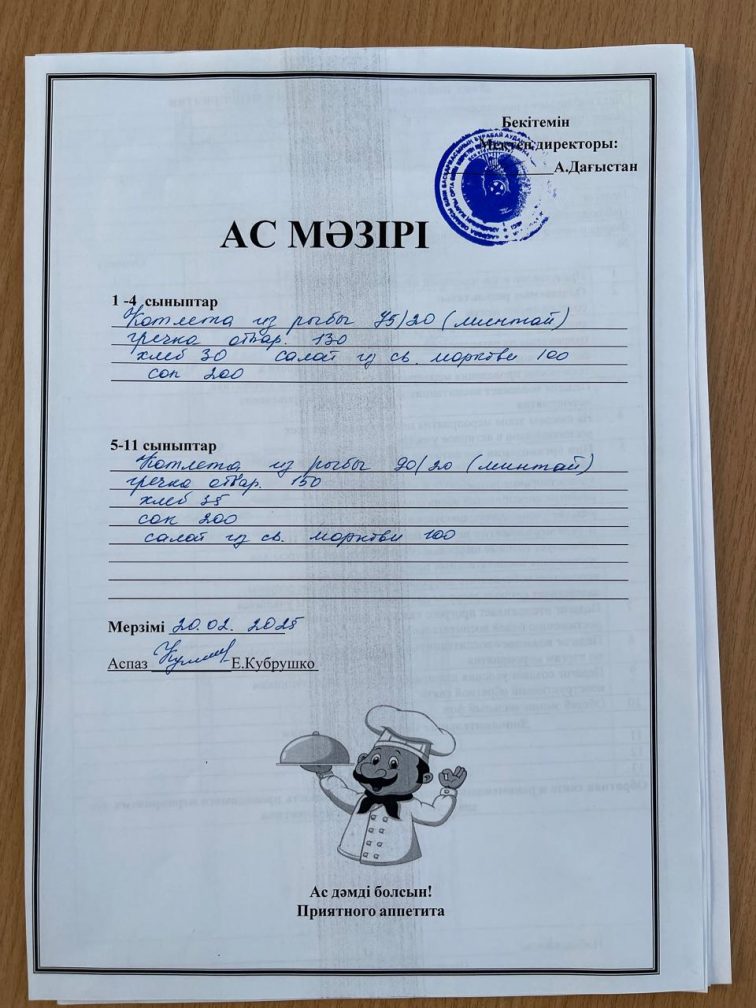 Бекітемін
Мектеп директоры:
А.Дағыстан
АС МӘЗІРІ
1 -4 сыныптар
Котлета из рыбы 75/20 (минтай)
гречка отвар. 130
хлеб 30 салат из св. моркови 100
сок 200
5-11 сыныптар
Котлета из рыбы 90/20 (минтай)
гречка отвар. 150
хлеб 35
сок 200
салат из св. моркови 100
Мерзімі 20.02. 2025
Аспаз Е.Кубрушко
Ас дәмді болсын!
Приятного аппетита